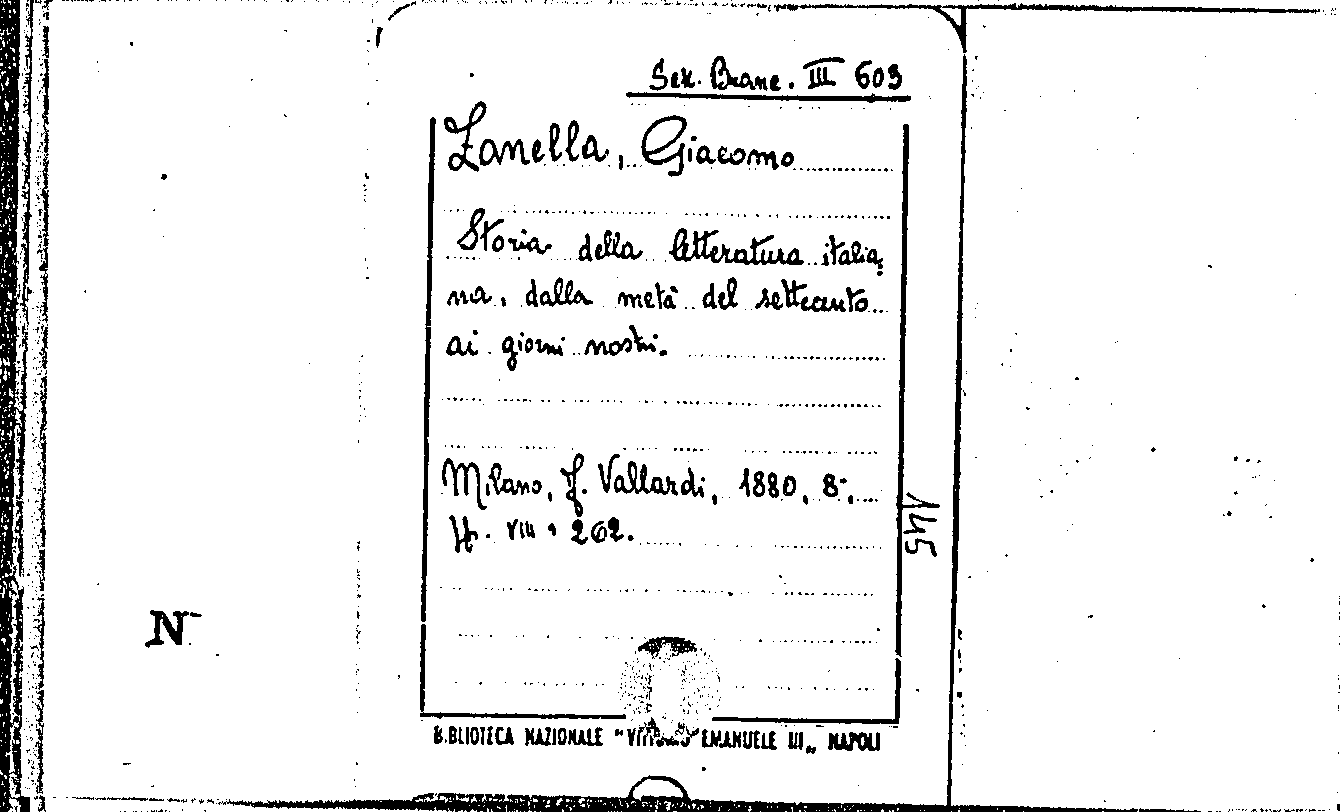 Sez. Branc. III 603
Zanella, Giacomo
Storia della letteratura italia=
na, dalla metà del settecento
ai giorni nostri.
Milano, F. Vallardi, 1880, 8°,
pp. VIII, 262.
145
N
BIBLIOTECA NAZIONALE "VITTORIO EMANUELE III„ NAPOLI